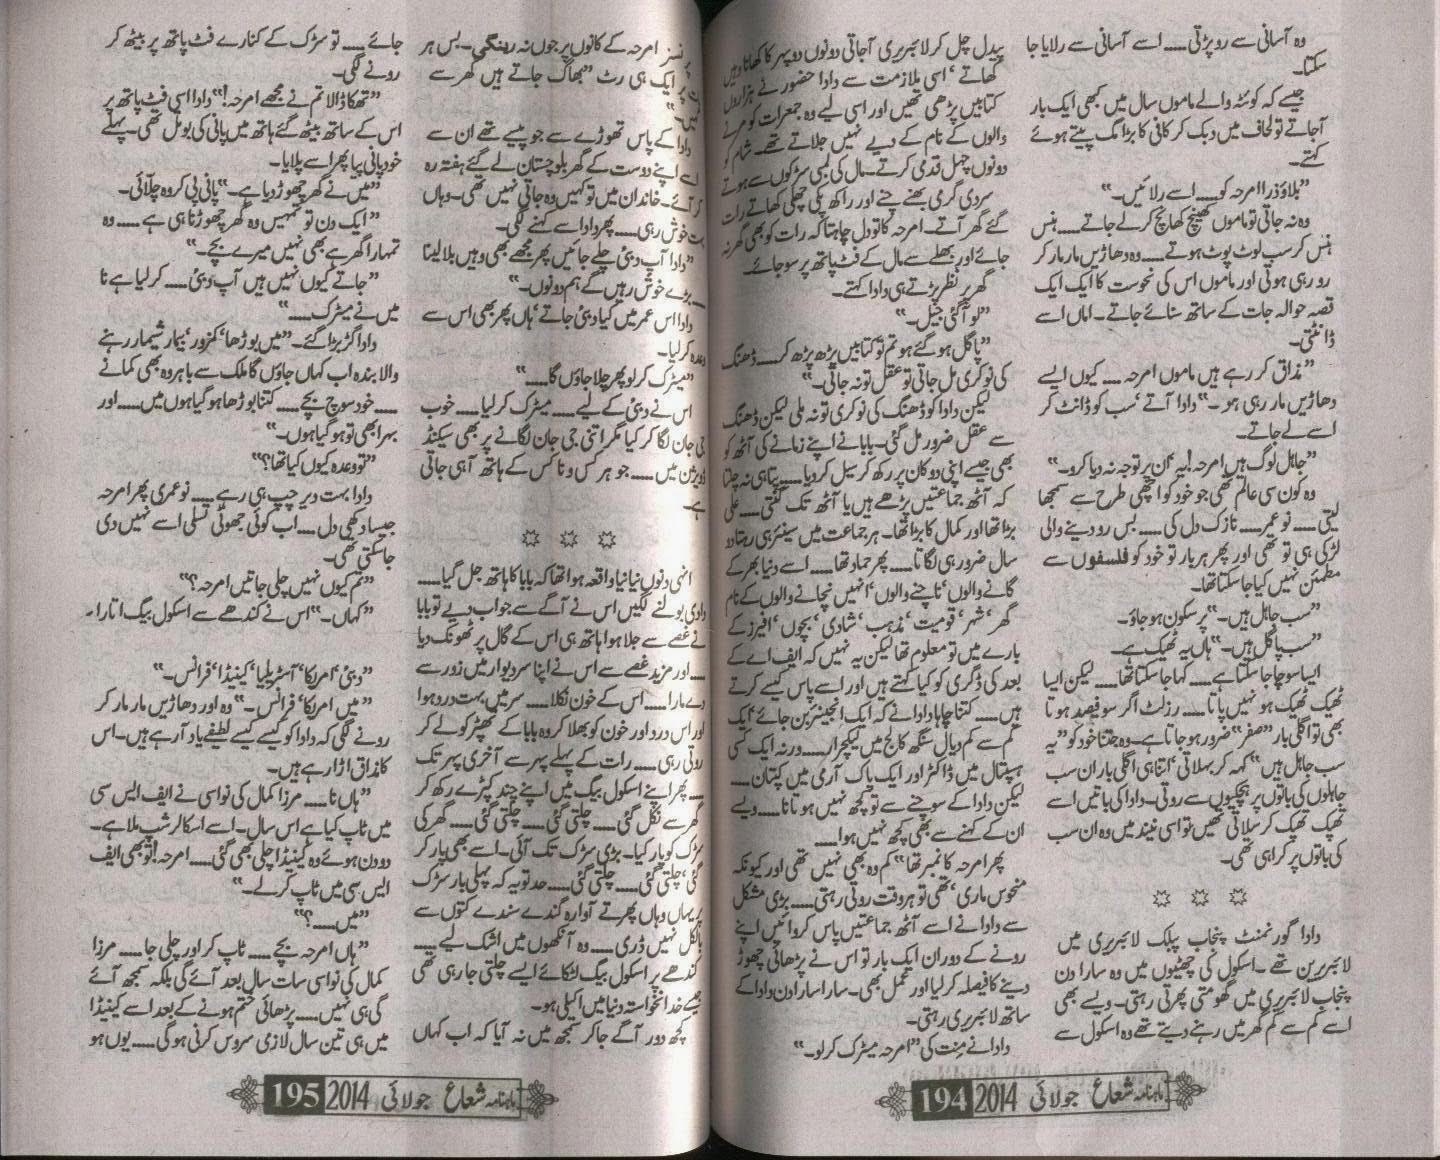 وہ آسانی سے رو پڑتی ..... اسے آسانی سے رلایا جا
سکتا۔
جیسے کہ کوئٹہ والے ماموں سال میں کبھی ایک بار
آجاتے تو لحاف میں دبک کر کافی کا بڑا مگ پیتے ہوئے
کہتے۔
”بلاؤ ذرا امرحہ کو..... اسے رلائیں۔“
وہ نہ جاتی تو ماموں کھینچ کھانچ کر لے جاتے..... ہنس
ہنس کر سب لوٹ پوٹ ہوتے..... وہ دھاڑیں مار مار کر
رو رہی ہوتی اور ماموں اس کی نحوست کا ایک ایک
قصہ حوالہ جات کے ساتھ سنائے جاتے۔ اماں اسے
ڈانٹتی۔
”مذاق کر رہے ہیں ماموں امرحہ..... کیوں ایسے
دھاڑیں مار رہی ہو۔“ دادا آتے ‘سب کو ڈانٹ کر
اسے لے جاتے۔
”جاہل لوگ ہیں امرحہ! یہ ‘ان پر توجہ نہ دیا کرو۔“
وہ کون سی عالم تھی جو خود کو اچھی طرح سے سمجھا
لیتی ..... نو عمر..... نازک دل کی ..... بس رو دینے والی
لڑکی ہی تو تھی اور پھر ہر بار تو خود کو فلسفوں سے
مطمئن نہیں کیا جا سکتا تھا۔
”سب جاہل ہیں۔“ پرسکون ہو جاؤ۔
”سب پاگل ہیں۔“ ہاں یہ ٹھیک ہے۔
ایسا سوچا جا سکتا ہے..... کہا جا سکتا تھا..... لیکن ایسا
ٹھیک ٹھیک ہو نہیں پاتا..... رزلٹ اگر سو فیصد ہوتا
بھی تو اگلی بار ”صفر“ ضرور ہو جاتا ہے۔ وہ جتنا خود کو ”یہ
سب جاہل ہیں“ کہہ کر بہلاتی ‘اتنا ہی اگلی بار ان سب
جاہلوں کی باتوں پر ہچکیوں سے روتی۔ دادا کی باتیں اسے
تھپک تھپک کر سلاتی تھیں تو اسی نیند میں وہ ان سب
کی باتوں پر کراہی تھی۔
☼ ☼ ☼
دادا گورنمنٹ پنجاب پبلک لائبریری میں
لائبریرین تھے۔ اسکول کی چھٹیوں میں وہ سارا دن
پنجاب لائبریری میں گھومتی پھرتی رہتی۔ ویسے بھی
اسے کم سے کم گھر میں رہنے دیتے تھے وہ اسکول سے
پیدل چل کر لائبریری آجاتی دونوں دوپہر کا کھانا وہیں
کھاتے ‘اسی ملازمت سے دادا حضور نے ہزاروں
کتابیں پڑھی تھیں اور اسی لیے وہ جمعرات کو مرنے
والوں کے نام کے دیے نہیں جلاتے تھے۔ شام کو
دونوں چہل قدمی کرتے۔ مال کی لمبی سڑکوں سے ہوتے
سردی گرمی بھنے چنے اور راکھ پکی چھلی کھاتے رات
گئے گھر آتے۔ امرحہ کا تو دل چاہتا کہ رات کو بھی گھر نہ
جائے اور بھلے سے مال کے فٹ پاتھ پر سو جائے۔
گھر پر نظر پڑتے ہی دادا کہتے۔
”لو آگئی جیل۔“
”پاگل ہو گئے ہو تم تو کتابیں پڑھ پڑھ کر..... ڈھنگ
کی نوکری مل جاتی تو عقل تو نہ جاتی۔“
لیکن دادا کو ڈھنگ کی نوکری تو نہ ملی لیکن ڈھنگ
سے عقل ضرور مل گئی۔ بابا نے اپنے زمانے کی آٹھ کو
بھی جیسے اپنی دوکان پر رکھ کر سیل کر دیا..... پتا ہی نہ چلتا
کہ آٹھ جماعتیں پڑھے ہیں یا آٹھ تک گنتی..... علی
بڑا تھا اور کمال کا بڑا تھا۔ ہر جماعت میں سینئر ہی رہتا دو
سال ضرور ہی لگاتا..... پھر حماد تھا..... اسے دنیا بھر کے
گانے والوں ‘ناچنے والوں ‘انہیں نچانے والوں کے نام
گھر‘ شہر‘ قومیت‘ مذہب‘ شادی‘ بچوں‘ افیئرز کے
بارے میں تو معلوم تھا لیکن یہ نہیں کہ ایف اے کے
بعد کی ڈگری کو کیا کہتے ہیں اور اسے پاس کیسے کرتے
ہیں ..... کتنا چاہا دادا نے کہ ایک انجینئر بن جائے ‘ایک
کم سے کم دیال سنگھ کالج میں لیکچرار..... ورنہ ایک کسی
ہسپتال میں ڈاکٹر اور ایک پاک آرمی میں کپتان.....
لیکن دادا کے سوچنے سے تو کچھ نہیں ہوتا نا..... ویسے
ان کے کہنے سے بھی کچھ نہیں ہوا.....
پھر امرحہ کا نمبر تھا ”کم وہ بھی نہیں تھی اور کیونکہ
منحوس ماری ‘تھی تو ہر وقت روتی رہتی..... بڑی مشکل
سے دادا نے اسے آٹھ جماعتیں پاس کروائیں اپنے
رونے کے دوران ایک بار تو اس نے پڑھائی چھوڑ
دینے کا فیصلہ کر لیا اور عمل بھی۔ سارا سارا دن دادا کے
ساتھ لائبریری رہتی۔
دادا نے منت کی ”امرحہ میٹرک کر لو۔“
ماہنامہ شعاع جولائی 2014 194
پرنسز امرحہ کے کانوں پر جوں نہ رینگی۔ بس ہر
پر ایک ہی رٹ ”بھاگ جاتے ہیں گھر سے
دادا کے پاس تھوڑے سے جو پیسے تھے ان سے
اسے اپنے دوست کے گھر بلوچستان لے گئے ہفتہ رہ
کر آئے۔ خاندان میں تو کہیں وہ جاتی نہیں تھی۔ وہاں
بہت خوش رہی..... پھر دادا سے کہنے لگی۔
”دادا آپ دبئی چلے جائیں پھر مجھے بھی وہیں بلا لینا
..... بڑے خوش رہیں گے ہم دونوں۔“
دادا اس عمر میں کیا دبئی جاتے ‘ہاں پھر بھی اس سے
وعدہ کر لیا۔
”میٹرک کر لو پھر چلا جاؤں گا.....“
اس نے دبئی کے لیے..... میٹرک کر لیا..... خوب
جی جان لگا کر کیا مگر اتنی جی جان لگانے پر بھی سیکنڈ
ڈویژن میں..... جو ہر کس و ناکس کے ہاتھ آ ہی جاتی
ہے۔
☼ ☼ ☼
انہی دنوں نیا نیا واقعہ ہوا تھا کہ بابا کا ہاتھ جل گیا.....
دادی بولنے لگیں اس نے آگے سے جواب دیے تو بابا
نے غصے سے جلا ہوا ہاتھ ہی اس کے گال پر ٹھونک دیا
..... اور مزید غصے سے اس نے اپنا سر دیوار میں زور سے
دے مارا..... اس کے خون نکلا..... سر میں بہت درد ہوا
اور اس درد اور خون کو بھلا کر وہ بابا کے تھپڑ کو لے کر
روتی رہی..... رات کے پہلے پہر سے آخری پہر تک
..... پھر اپنے اسکول بیگ میں اپنے چند کپڑے رکھ کر
گھر سے نکل گئی..... چلتی گئی..... چلتی گئی..... گھر کی
سڑک کو پار کیا۔ بڑی سڑک تک آئی۔ اسے بھی پار کر
گئی‘ چلتی گئی..... چلتی گئی..... حد تو یہ کہ پہلی بار سڑک
پر یہاں وہاں پھرتے آوارہ گندے سندے کتوں سے
بالکل نہیں ڈری..... وہ آنکھوں میں اشک لیے.....
کندھے پر اسکول بیگ لٹکائے ایسے چلتی جا رہی تھی
جیسے خدانخواستہ دنیا میں اکیلی ہو۔
کچھ دور آگے جا کر سمجھ میں نہ آیا کہ اب کہاں
جائے..... تو سڑک کے کنارے فٹ پاتھ پر بیٹھ کر
رونے لگی۔
”تھکا ڈالا تم نے مجھے امرحہ!“ دادا اسی فٹ پاتھ پر
اس کے ساتھ بیٹھ گئے ہاتھ میں پانی کی بوتل تھی۔ پہلے
خود پانی پیا پھر اسے پلایا۔
”میں نے گھر چھوڑ دیا ہے۔“ پانی پی کر وہ چلّائی۔
”ایک دن تو تمہیں وہ گھر چھوڑنا ہی ہے..... وہ
تمہارا گھر ہے بھی نہیں میرے بچے۔“
”جاتے کیوں نہیں ہیں آپ دبئی..... کر لیا ہے نا
میں نے میٹرک.....“
دادا گڑبڑا گئے۔ ”میں بوڑھا‘ کمزور‘ بیمار شیمار رہنے
والا بندہ اب کہاں جاؤں گا ملک سے باہر وہ بھی کمانے
..... خود سوچ بچے..... کتنا بوڑھا ہو گیا ہوں میں..... اور
بہرا بھی تو ہو گیا ہوں۔“
”تو وعدہ کیوں کیا تھا؟“
دادا بہت دیر چپ ہی رہے..... نو عمری پھر امرحہ
جیسا دکھی دل..... اب کوئی جھوٹی تسلی اسے نہیں دی
جا سکتی تھی۔
”تم کیوں نہیں چلی جاتیں امرحہ؟“
”کہاں۔“ اس نے کندھے سے اسکول بیگ اتارا۔
”دبئی‘ امریکا‘ آسٹریلیا‘ کینیڈا‘ فرانس۔“
”میں امریکا‘ فرانس۔“ وہ اور دھاڑیں مار مار کر
رونے لگی کہ دادا کو کیسے کیسے لطیفے یاد آ رہے ہیں۔ اس
کا مذاق اڑا رہے ہیں۔
”ہاں نا..... مرزا کمال کی نواسی نے ایف ایس سی
میں ٹاپ کیا ہے اس سال۔ اسے اسکالر شپ ملا ہے۔
دو دن ہوئے وہ کینیڈا چلی بھی گئی..... امرحہ! تو بھی ایف
ایس سی میں ٹاپ کر لے۔“
”میں.....؟“
”ہاں امرحہ بچے..... ٹاپ کر اور چلی جا..... مرزا
کمال کی نواسی سات سال بعد آئے گی بلکہ سمجھ آئے
گی ہی نہیں..... پڑھائی ختم ہونے کے بعد اسے کینیڈا
میں ہی تین سال لازمی سروس کرنی ہو گی..... یوں ہو
ماہنامہ شعاع جولائی 2014 195